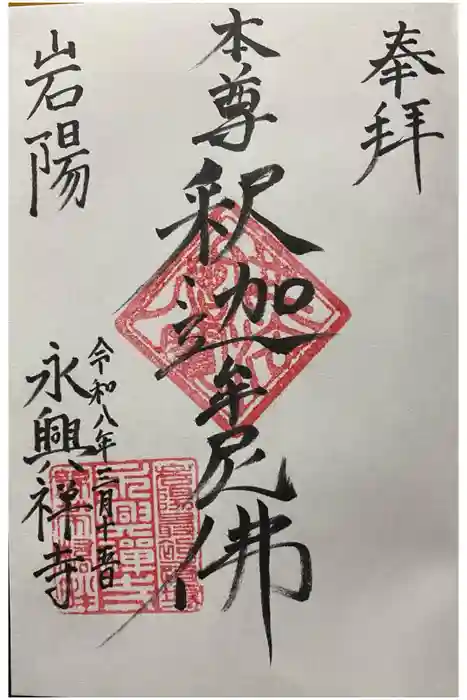 奉拝
本尊釈迦牟尼佛
岩陽
令和八年三月十五日
永興禅寺
永興禪寺